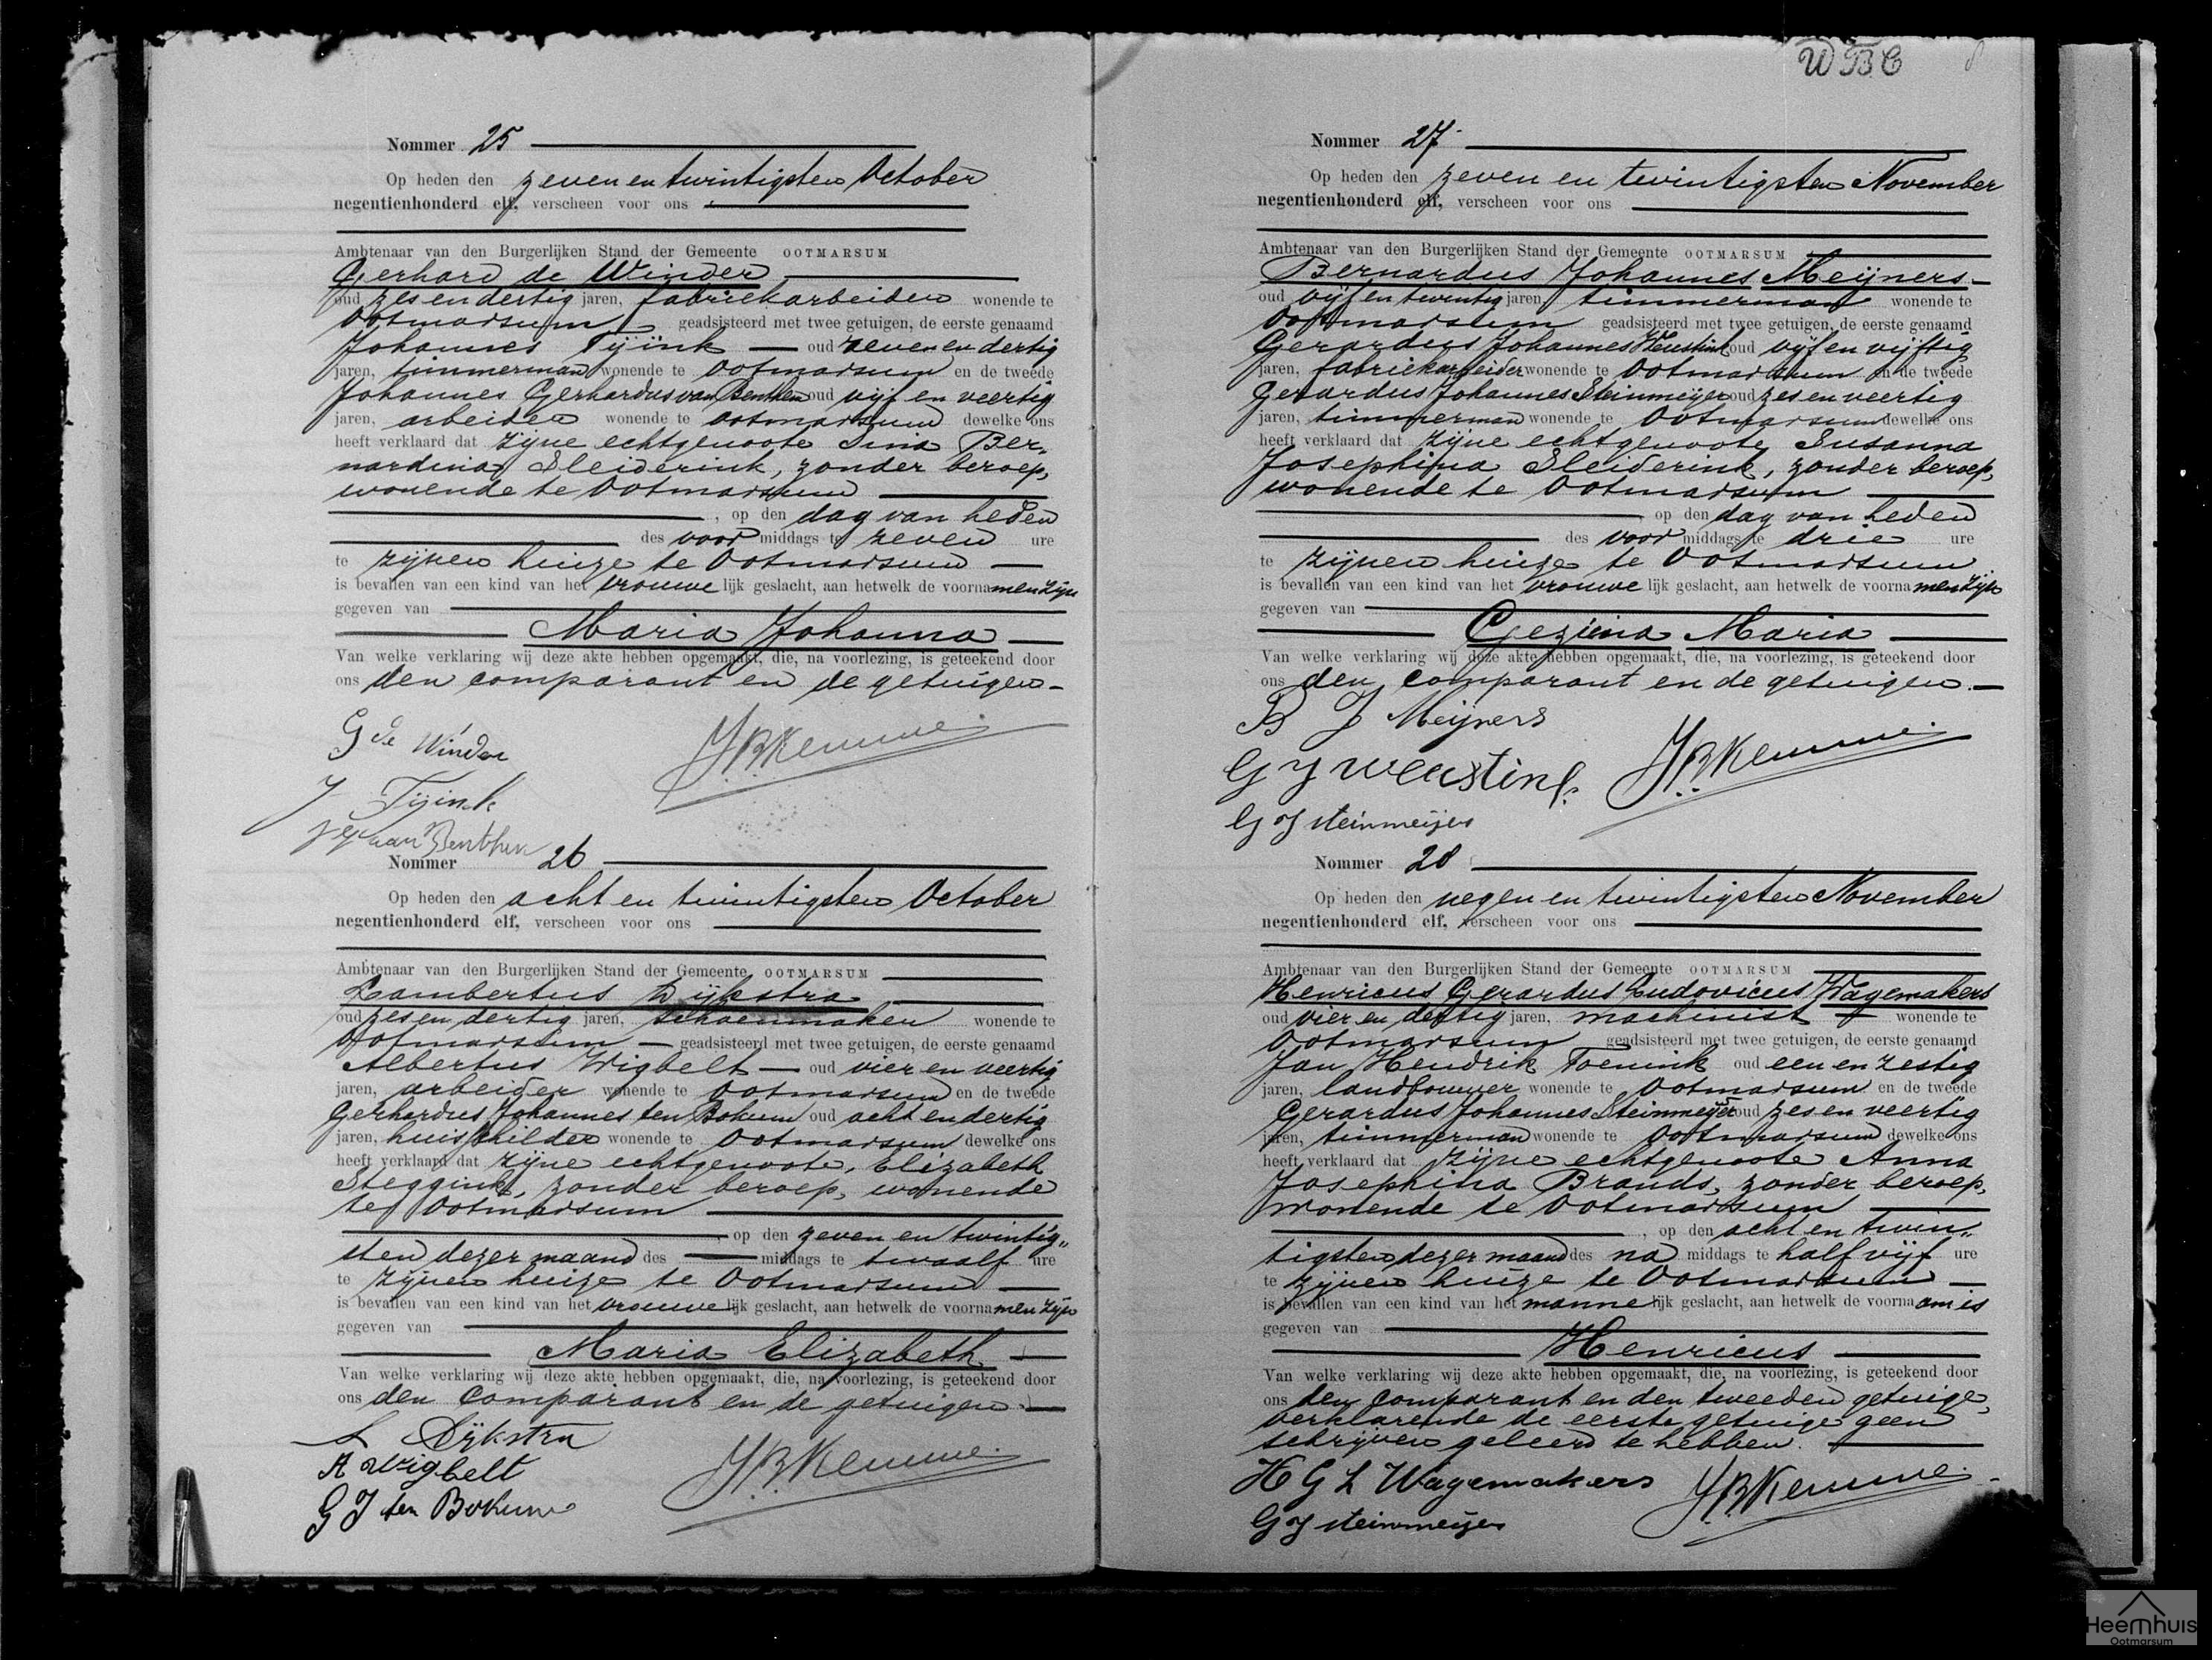 Nommer 25
Op heden den zeven en twintigsten October
negentienhonderd elf, verscheen voor ons
Ambtenaar van den Burgerlijken Stand der Gemeente OOTMARSUM
Gerhard de Winder
oud zes en dertig jaren, fabriekarbeider wonende te
Ootmarsum geadsisteerd met twee getuigen, de eerste genaamd
Johannes Tijink oud zeven en dertig
jaren, timmerman wonende te Ootmarsum en de tweede
Johannes Gerhardus van Benthem oud vijf en veertig
jaren, arbeider wonende te Ootmarsum dewelke ons
heeft verklaard dat zijne echtgenoote Sina Ber-
nardina Sleiderink, zonder beroep,
wonende te Ootmarsum
, op den dag van heden
des voor middags te zeven ure
te zijnen huize te Ootmarsum
is bevallen van een kind van het vrouwe lijk geslacht, aan hetwelk de voornamen zijn
gegeven van
Maria Johanna
Van welke verklaring wij deze akte hebben opgemaakt, die, na voorlezing, is geteekend door
ons den comparant en de getuigen.
G de Winder
J Tijink
JBKemme
J G van Benthem
Nommer 26
Op heden den acht en twintigsten October
negentienhonderd elf, verscheen voor ons
Ambtenaar van den Burgerlijken Stand der Gemeente OOTMARSUM
Lambertus Dijkstra
oud zes en dertig jaren, schoenmaker wonende te
Ootmarsum geadsisteerd met twee getuigen, de eerste genaamd
Albertus Wigbelt oud vier en veertig
jaren, arbeider wonende te Ootmarsum en de tweede
Gerhardus Johannes ten Bokum oud acht en dertig
jaren, huisschilder wonende te Ootmarsum dewelke ons
heeft verklaard dat zijne echtgenoote, Elizabeth
Steggink, zonder beroep, wonende
te Ootmarsum
, op den zeven en twintig"
sten dezer maand des middags te twaalf ure
te zijnen huize te Ootmarsum
is bevallen van een kind van het vrouwe lijk geslacht, aan hetwelk de voornamen zijn
gegeven van
Maria Elizabeth
Van welke verklaring wij deze akte hebben opgemaakt, die, na voorlezing, is geteekend door
ons den comparant en de getuigen.
L Dijkstra
A Wigbelt
JBKemme
G J ten Bokum
WBC
Nommer 27
Op heden den zeven en twintigsten November
negentienhonderd elf, verscheen voor ons
Ambtenaar van den Burgerlijken Stand der Gemeente OOTMARSUM
Bernardus Johannes Meijners
oud vijf en twintig jaren, timmerman wonende te
Ootmarsum geadsisteerd met twee getuigen, de eerste genaamd
Gerardus Johannes Weustink oud vijf en vijftig
jaren, fabriekarbeider wonende te Ootmarsum en de tweede
Gerardus Johannes Steinmeijer oud zes en veertig
jaren, timmerman wonende te Ootmarsum dewelke ons
heeft verklaard dat zijne echtgenoote, Susanna
Josephina Sleiderink, zonder beroep,
wonende te Ootmarsum
, op den dag van heden
des voor middags te drie ure
te zijnen huize te Ootmarsum
is bevallen van een kind van het vrouwe lijk geslacht, aan hetwelk de voornamen zijn
gegeven van
Gezina Maria
Van welke verklaring wij deze akte hebben opgemaakt, die, na voorlezing, is geteekend door
ons den comparant en de getuigen.
B J Meijners
G J Weustink
JBKemme
G J Steinmeijer
Nommer 28
Op heden den negen en twintigsten November
negentienhonderd elf, verscheen voor ons
Ambtenaar van den Burgerlijken Stand der Gemeente OOTMARSUM
Henricus Gerardus Ludovicus Wagemakers
oud vier en dertig jaren, machinist wonende te
Ootmarsum geadsisteerd met twee getuigen, de eerste genaamd
Jan Hendrik Toenink oud een en zestig
jaren, landbouwer wonende te Ootmarsum en de tweede
Gerardus Johannes Steinmeijer oud zes en veertig
jaren, timmerman wonende te Ootmarsum dewelke ons
heeft verklaard dat zijne echtgenoote Anna
Josephina Brands, zonder beroep,
wonende te Ootmarsum
, op den acht en twin"
tigsten dezer maand des na middags te half vijf ure
te zijnen huize te Ootmarsum
is bevallen van een kind van het manne lijk geslacht, aan hetwelk de voornaam is
gegeven van
Henricus
Van welke verklaring wij deze akte hebben opgemaakt, die, na voorlezing, is geteekend door
ons den comparant en den tweeden getuige,
verklarende de eerste getuige geen
schrijven geleerd te hebben.
H G L Wagemakers
JBKemme
G J Steinmeijer
Heemhuis
Ootmarsum